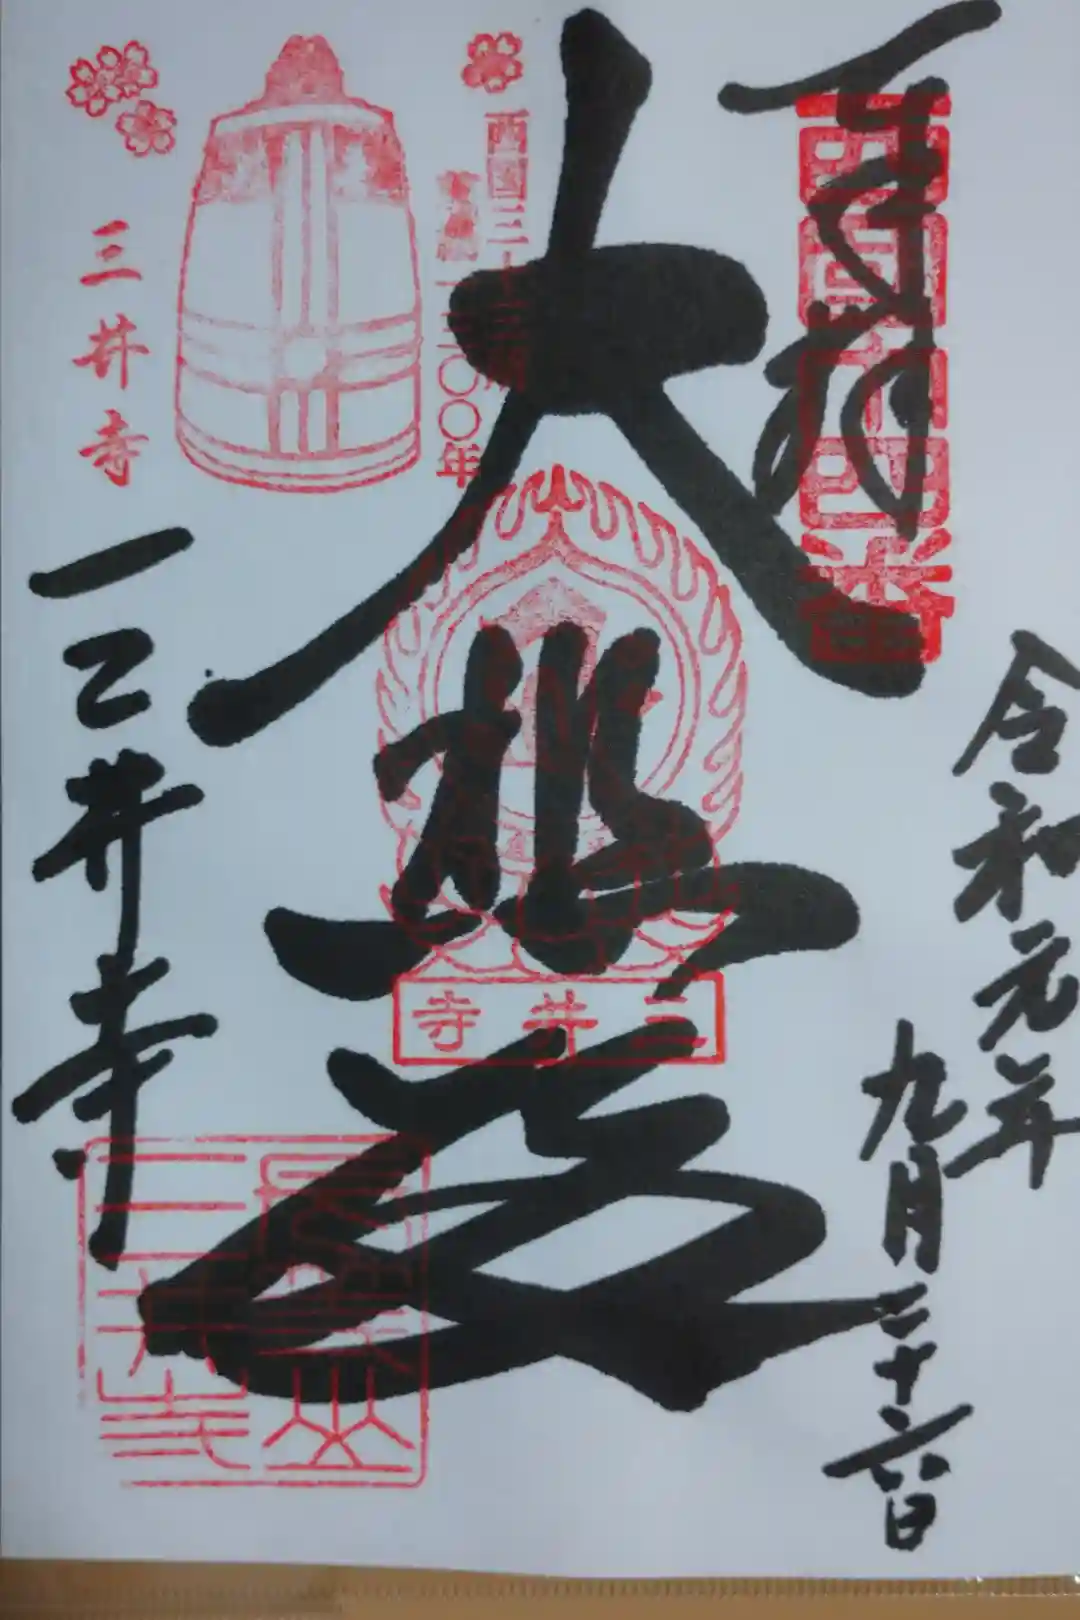 奉拝
西国十四番
令和元年
九月二十六日
大悲殿
三井寺
西国三十三所
草創一三〇〇年
三井寺
三井寺
長等山
三井寺